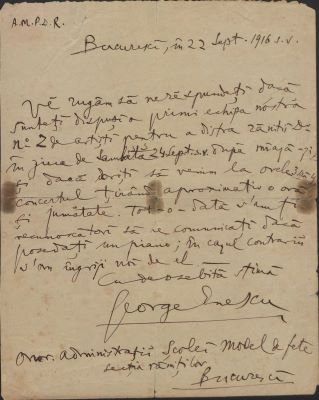 A.M.P.D.R.
București, în 22 Sept. 1916 s.v.
Vě rugăm să ne răspundeți dacă
sunteți dispuși a primi echipa noastră
No 2 de artiști pentru a distra răniții D-v
în ziua de Sâmbătă 24 Sept. s.v. după miază-zi,
și dacă doriți să venim la orele
concertul ținând aproximativ o oră
și jumătate. Tot-o-dată v'am fi
recunoscători să ne comunicați dacă
posedați un piano; în cazul contrariu
v'om îngriji noi de el.
Cu deosebită stimă
George Enescu
Onor. Administrații Școlei model de fete
secția răniților
București